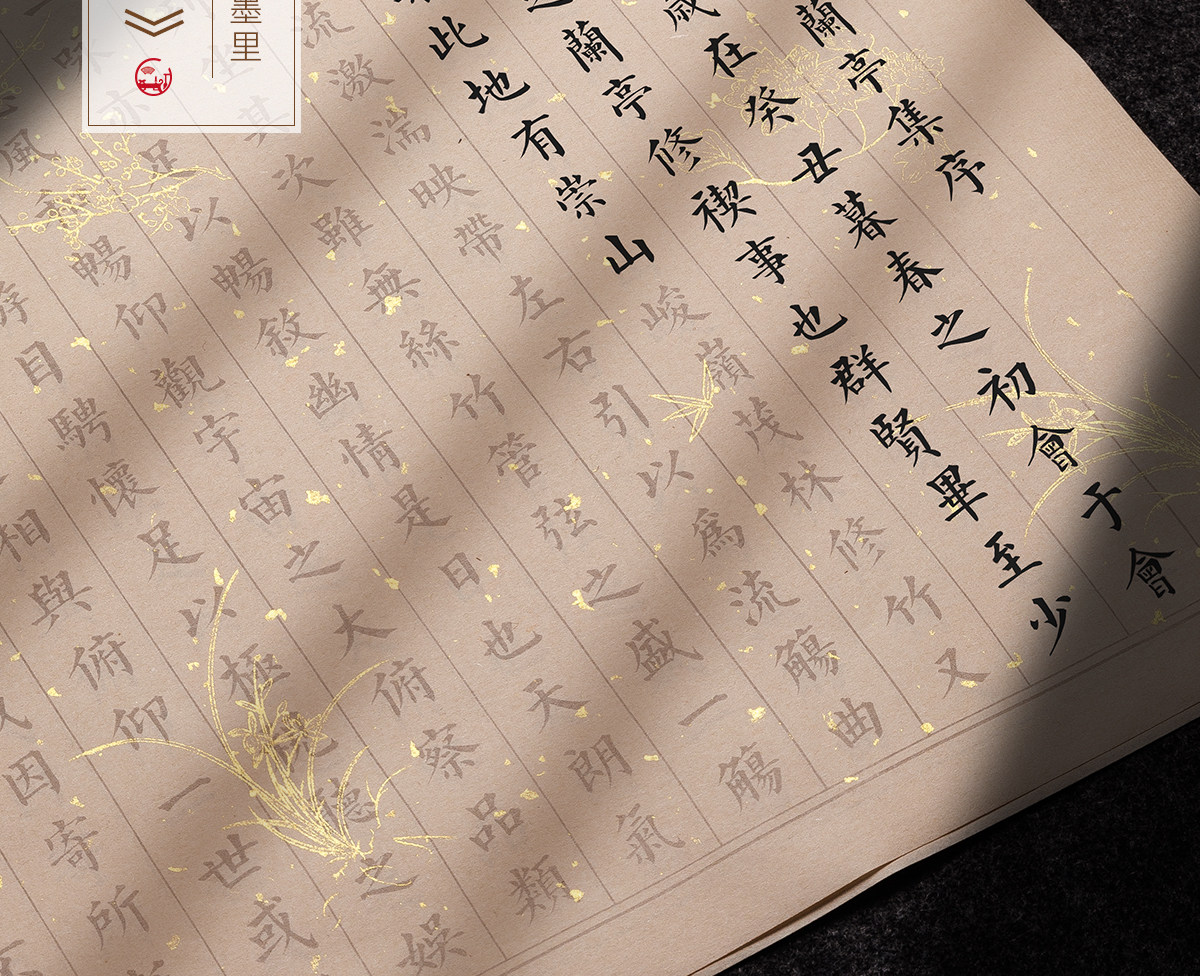 墨里
蘭亭集序
歲在癸丑暮春之初會于會
之蘭亭修禊事也群賢畢至少
此地有崇山峻嶺茂林修竹又
流激湍映帶左右引以爲流觴曲
坐其次雖無絲竹管弦之盛一觴
詠亦足以暢敘幽情是日也天朗氣
風和暢仰觀宇宙之大俯察品類
目騁懷足以極視聽之娛
相與俯仰一世或
因寄所